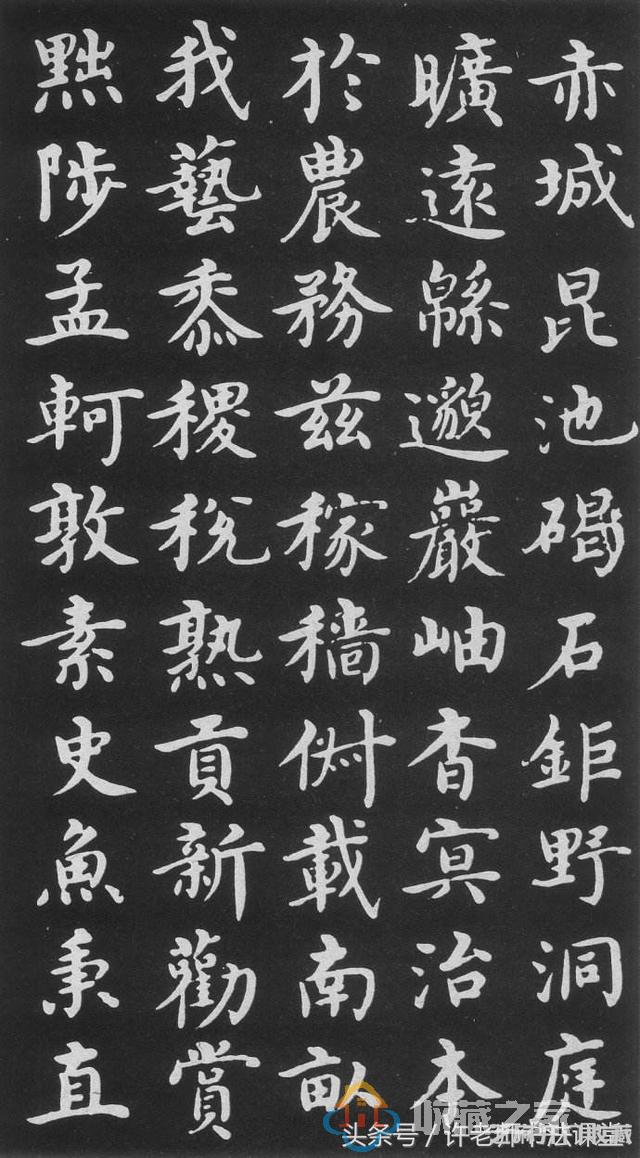 赤城昆池碣石鉅野洞庭
曠遠緜邈巖岫杳冥治本
於農務茲稼穡俶載南畝
我藝黍稷稅熟貢新勸賞
黜陟孟軻敦素史魚秉直
收藏之家
头条号／许老师书法课堂